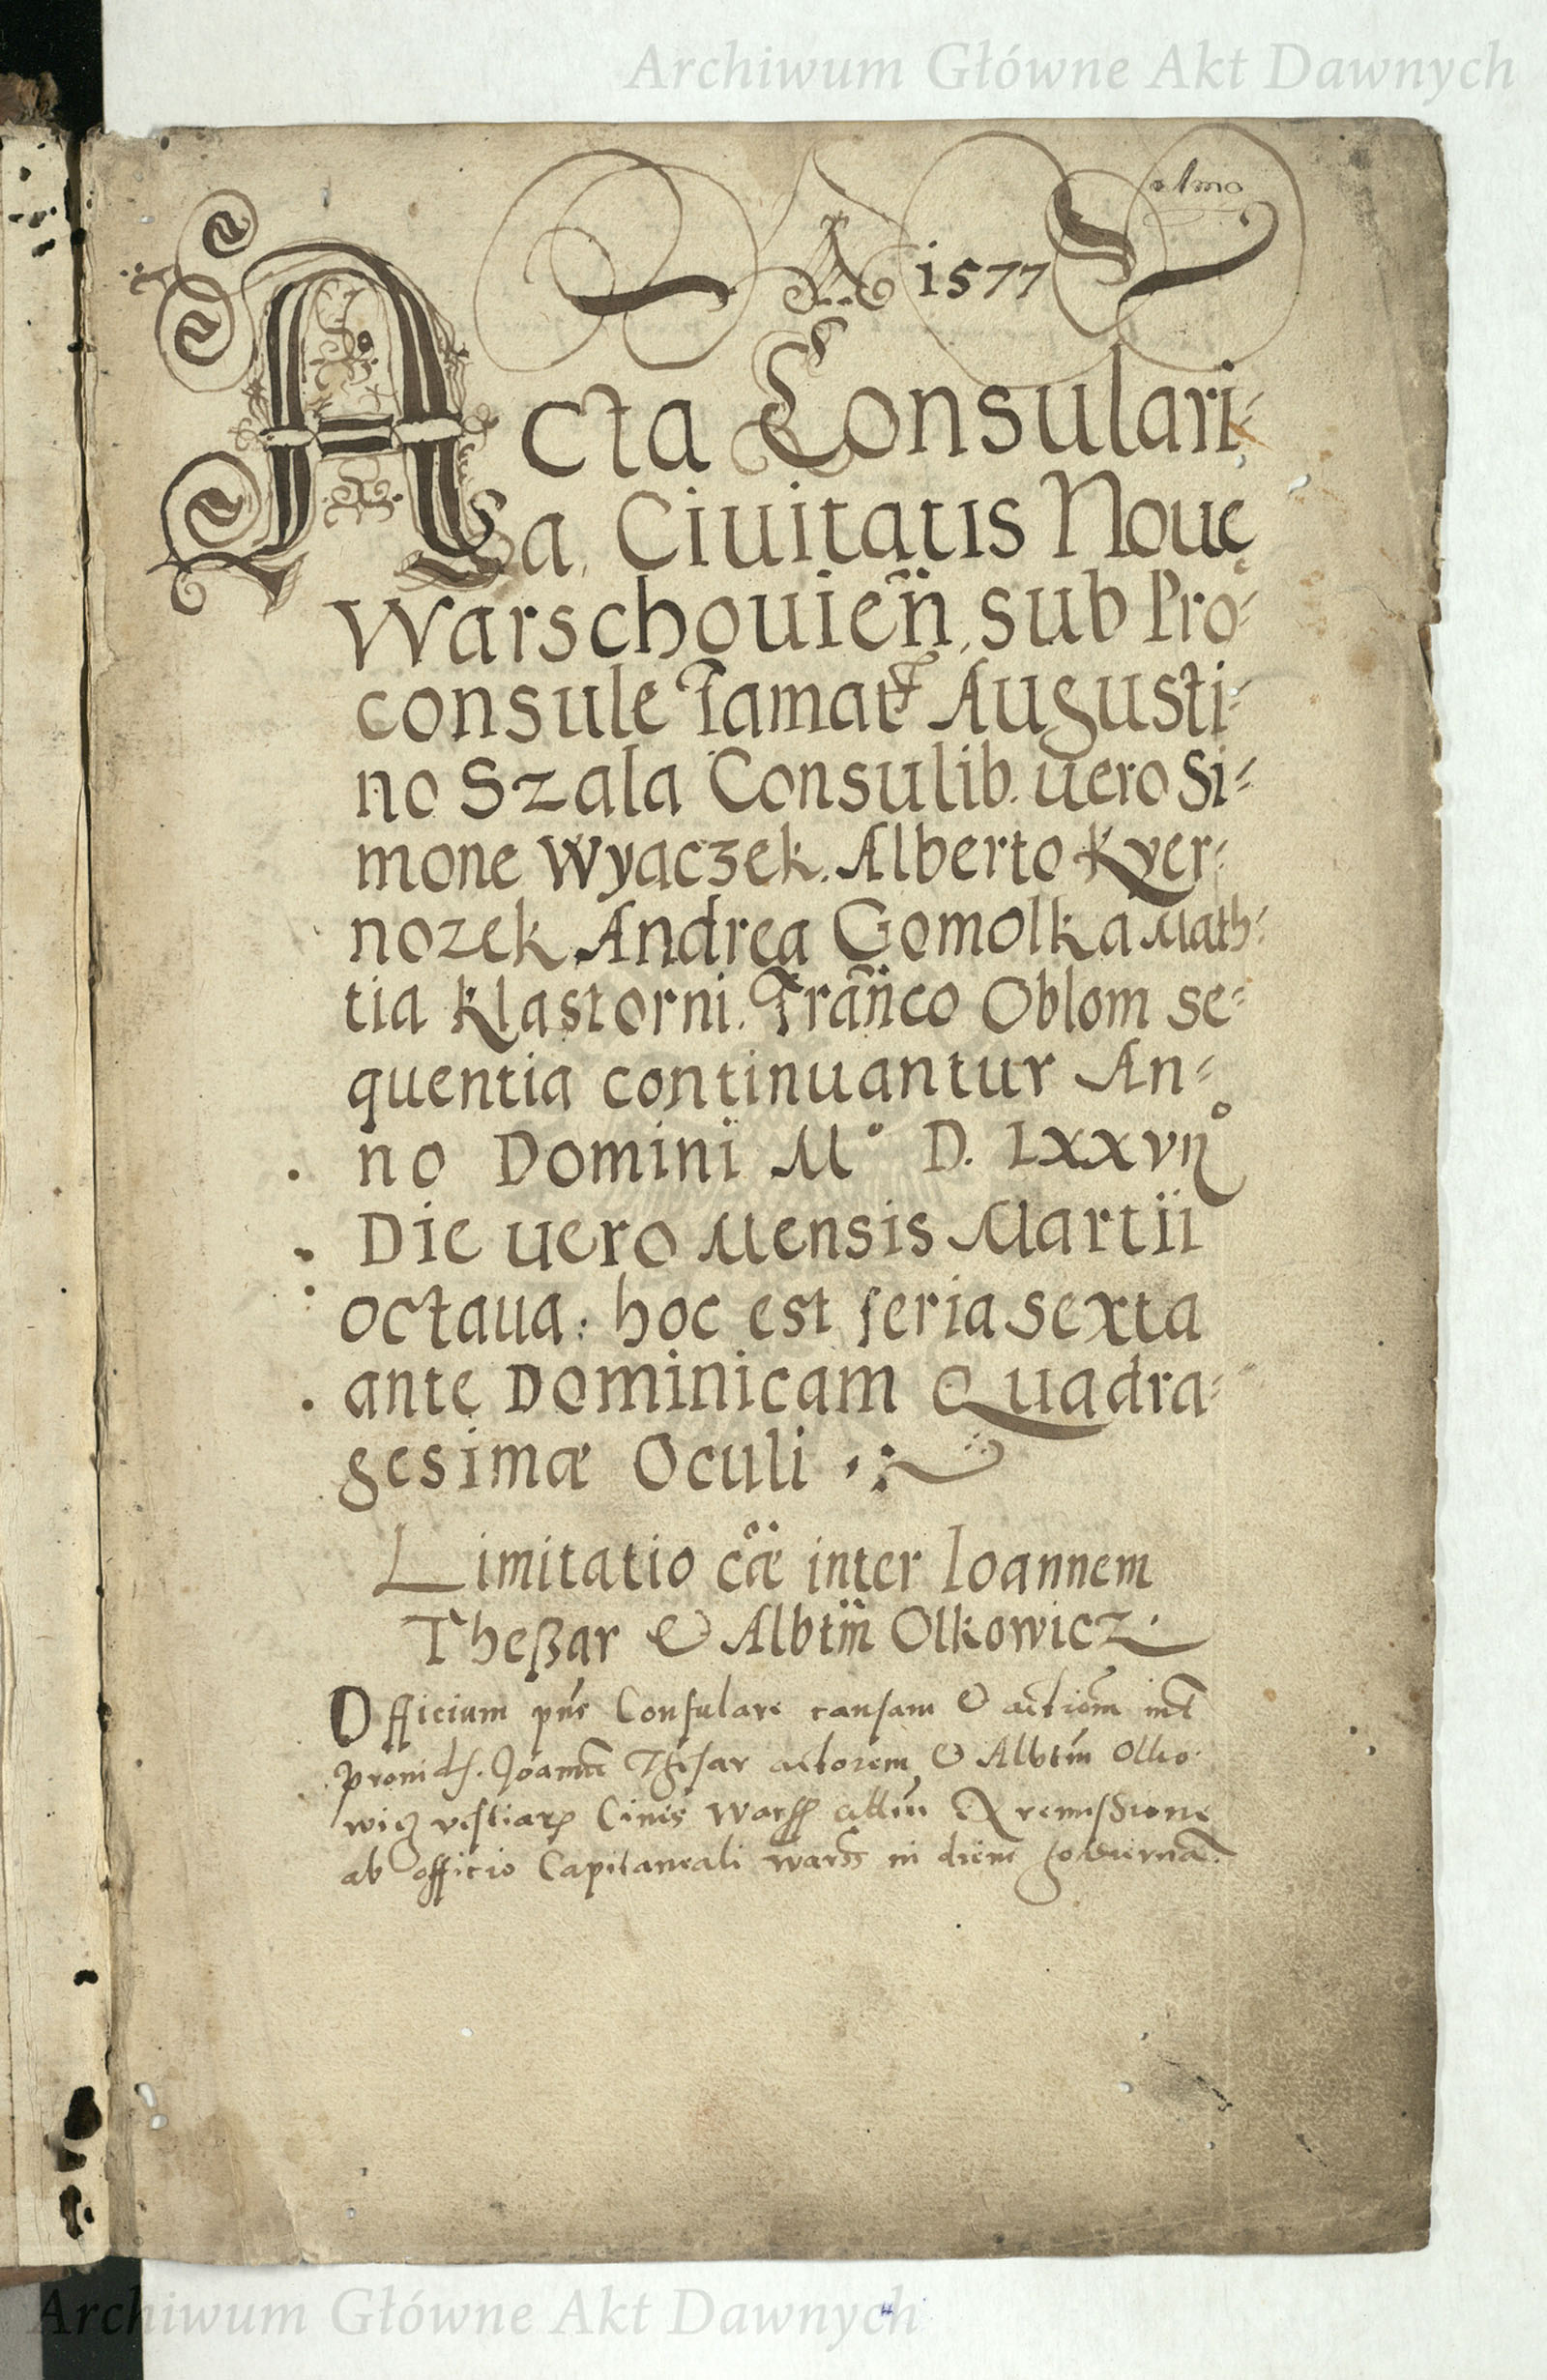 Archiwum Główne Akt Dawnych
A 1577
Acta Consulari-
a, Ciuitatis Noue
Warschouień, sub Pro-
consule Famat Augusti-
no Szala Consulib. uero Si-
mone Wyaczek. Alberto Kyer-
nozek Andrea Gomolka Math-
tia Klastorni. Franco Oblom se-
quentia continuantur An-
no Domini M° D. Lxxvij°
Die uero Mensis Martii
octaua: hoc est feria sexta
ante Dominicam Quadra-
gesimæ Oculi
Limitatio cæ inter Ioannem
Theßar & Albtm Olkowicz
Officium pns Consulare causam & actiom int
prouid. Joannē Thesar actorem & Albtm Olko-
wicz Ciuis Warss remissione
ab officio Capitaneali wars in diem hodierna.
Archiwum Główne Akt Dawnych